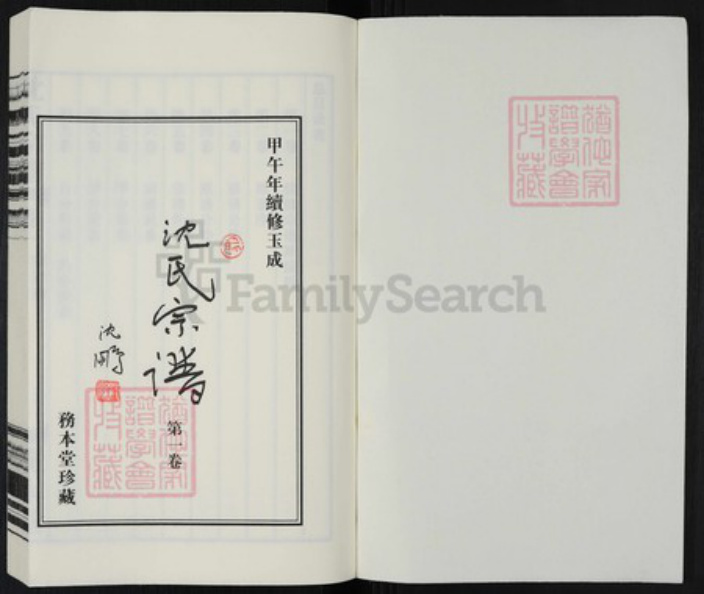 甲午年續修玉成
沈氏宗譜
第一卷
沈鵬
務本堂珍藏
譜學會
收藏
譜學會
收藏
FamilySearch